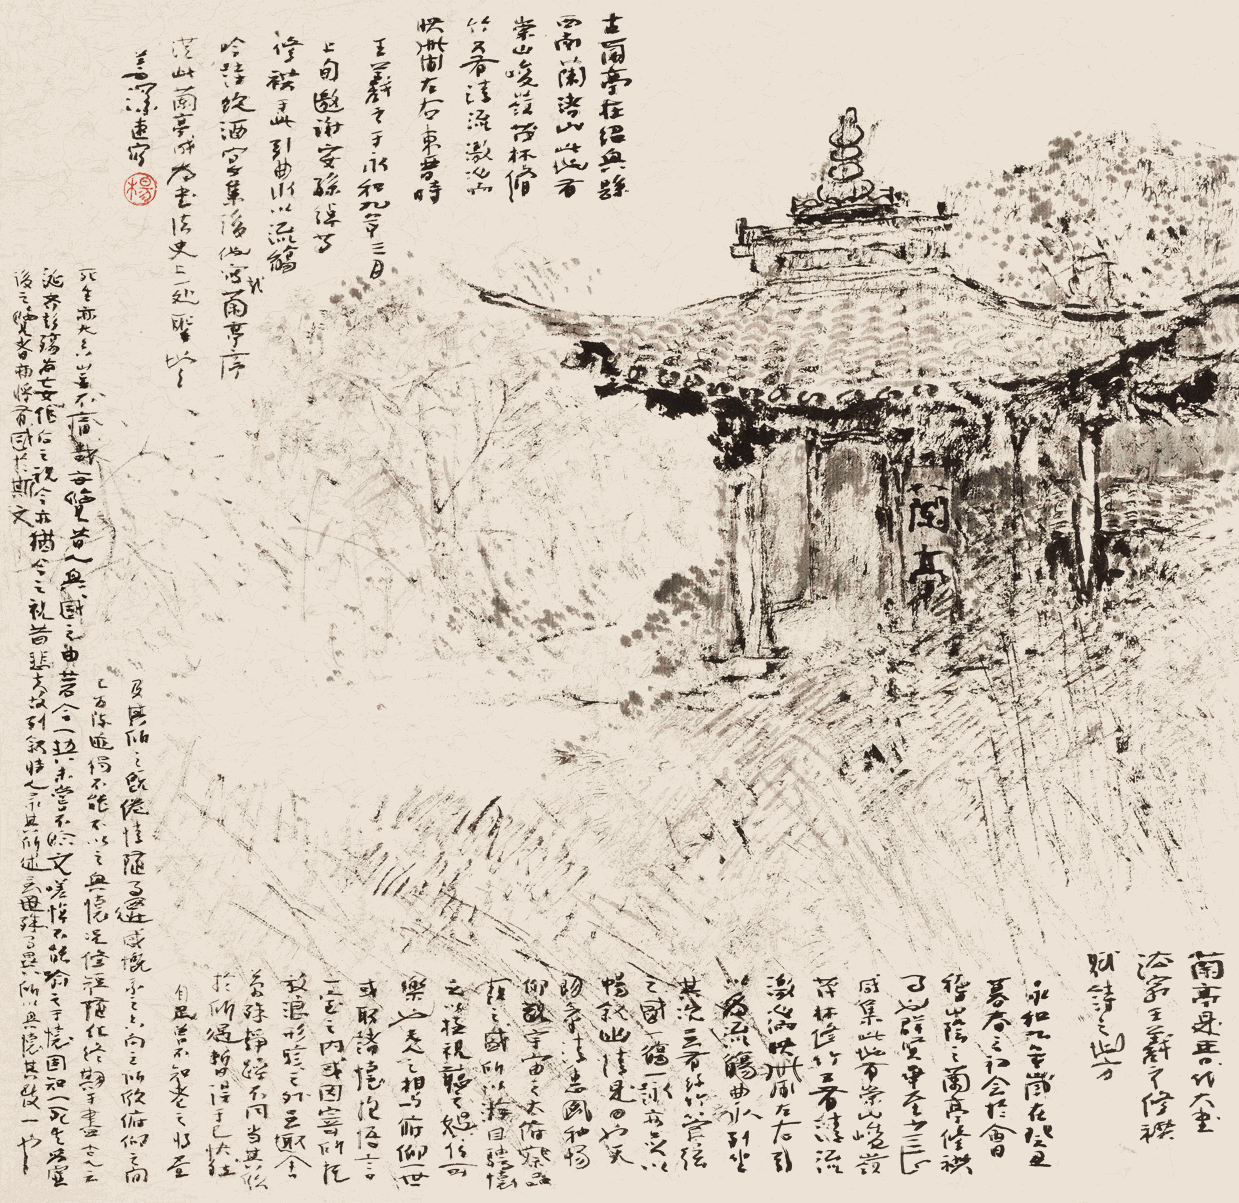 古蘭亭在紹興縣
西南蘭渚山此地有
崇山峻嶺茂林脩
竹又有清流激湍
映帶左右東晉時
王羲之于永和九年三月
上旬邀謝安孫綽等
修禊于此引曲水以流觴
吟詩飲酒宴集後他寫蘭亭序
從此蘭亭成為書法史上一处聖地
善深速寫
楊
蘭亭
蘭亭是晉代大書
法家王羲之修禊
賦詩之地方
永和九年歲在癸丑
暮春之初會於會
稽山陰之蘭亭修禊
事也群賢畢至少長
咸集此地有崇山峻嶺
茂林修竹又有清流
激湍映帶左右引
以為流觴曲水列坐
其次雖無絲竹管弦
之盛一觴一詠亦足以
暢敘幽情是日也天
朗氣清惠風和暢
仰觀宇宙之大俯察品
類之盛所以遊目騁懷
足以極視聽之娛信可
樂也夫人之相與俯仰一世
或取諸懷抱悟言
一室之內或因寄所託
放浪形骸之外雖取舍
萬殊靜躁不同當其欣
於所遇暫得于己快然
自足曾不知老之將至
及其所之既倦情隨事遷感慨系之矣向之所欣俯仰之間
已為陳跡猶不能不以之興懷況修短隨化終期于盡古人云
死生亦大矣豈不痛哉每覽昔人興感之由若合一契未嘗不臨文嗟悼不能喻之于懷固知一死生為虛
誕齊彭殤為妄作後之視今亦猶今之視昔悲夫故列敘時人錄其所述雖世殊事異所以興懷其致一也
後之覽者亦將有感於斯文